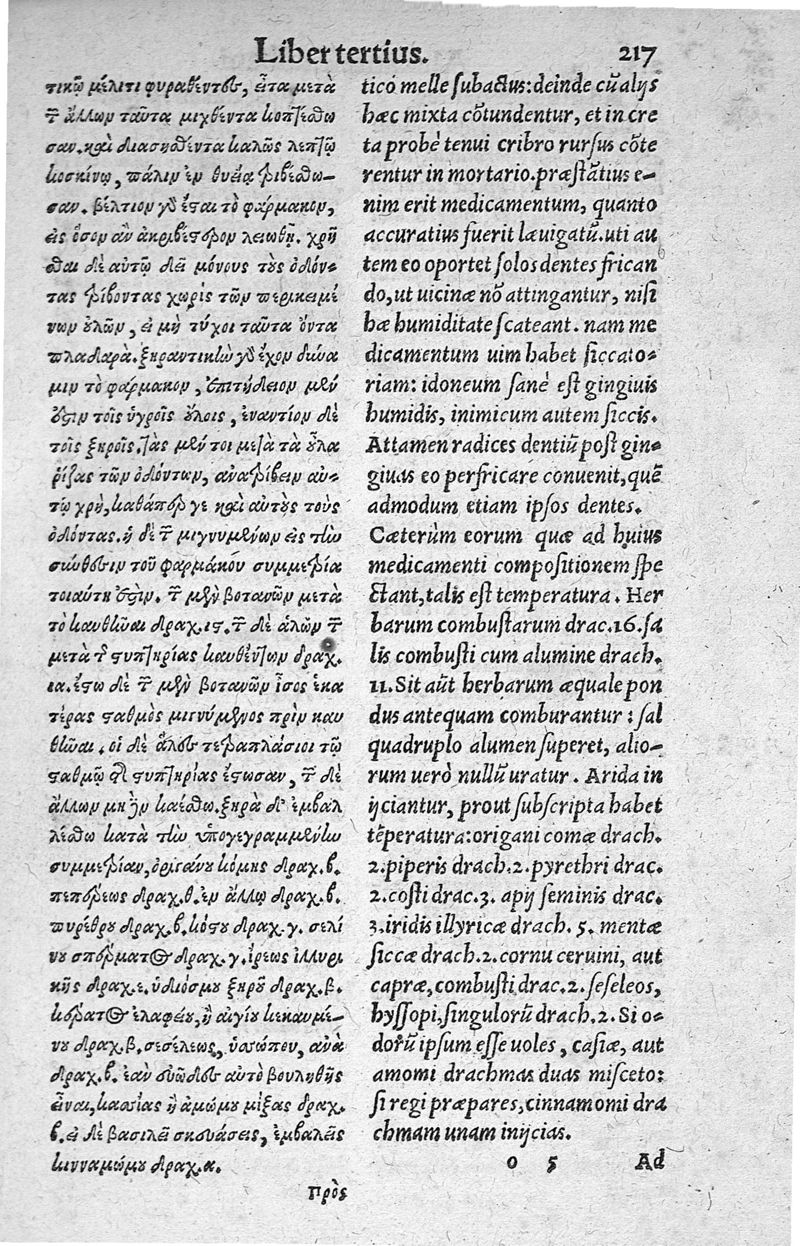 Liber tertius. 217
τικῷ μέλιτι φυραθέντες, εἶτα μετὰ
τῶν ἄλλων ταῦτα μιχθέντα κοπτέσθω
σαν. καὶ διασηθέντα καλῶς λεπτῷ
κοσκίνῳ, πάλιν ἐν θυείᾳ τριβέσθω-
σαν. βέλτιον γὰρ ἔσται τὸ φάρμακον,
εἰς ὅσον ἂν ἀκριβέστερον λειωθῇ. χρῆ
σθαι δὲ αὐτῷ δεῖ μόνους τοὺς ὀδόν-
τας τρίβοντας χωρὶς τῶν περικειμέ
νων οὔλων, εἰ μὴ τύχοι ταῦτα ὄντα
πλαδαρὰ. ξηραντικὴν γὰρ ἔχον δύνα
μιν τὸ φάρμακον, ἐπιτήδειον μέν
ἐστιν τοῖς ὑγροῖς οὔλοις, ἐναντίον δὲ
τοῖς ξηροῖς. τὰς μέν τοι μετὰ τὰ οὖλα
ῥίζας τῶν ὀδόντων, ἀνατρίβειν αὐ-
τῷ χρὴ, καθάπερ γε καὶ αὐτοὺς τοὺς
ὀδόντας. ἡ δὲ τῶν μιγνυμένων εἰς τὴν
σκεύεσιν τοῦ φαρμάκου συμμετρία
τοιαύτη ἐστὶν. τῶν μὲν βοτανῶν μετὰ
τὸ καυθῆναι δραχ. ις. τῶν δὲ ἁλῶν τῶν
μετὰ τῆς στυπτηρίας καυθέντων δραχ.
ια. ἔστω δὲ τῶν μὲν βοτανῶν ἴσος ἑκα
τέρας σταθμὸς μιγνύμενος πρὶν καυ
θῆναι. οἱ δὲ ἅλες τετραπλάσιοι τῷ
σταθμῷ τῆς στυπτηρίας ἔστωσαν, τῶν δὲ
ἄλλων μηδὲν καιέσθω. ξηρὰ δ' ἐμβαλ
λέσθω κατὰ τὴν ὑπογεγραμμένην
συμμετρίαν, ὀριγάνου κόμης δραχ. β.
πεπέρεως δραχ. θ. ἐν ἄλλῳ δραχ. β.
πυρέθρου δραχ. β. κόστου δραχ. γ. σελί
νου σπέρματος δραχ. γ. ἴρεως ἰλλυρι
κῆς δραχ. ε. ἡδυόσμου ξηροῦ δραχ. β.
κέρατος ἐλαφείου, ἢ αἰγίου κεκαυμέ-
νου δραχ. β. σεσέλεως, ὑσσώπου, ἀνὰ
δραχ. β. ἐὰν εὐῶδες αὐτὸ βουληθῇς
εἶναι, κασσίας ἢ ἀμώμου μίξας δραχ.
β. εἰ δὲ βασιλεῖ σκευάσεις, ἐμβαλεῖς
κινναμώμου δραχ. α.
Πρὸς
tico melle subactus: deinde cũ alijs
hæc mixta cõtundentur, et in cre
ta probè tenui cribro rursus cõte
rentur in mortario. præstãtius e-
nim erit medicamentum, quanto
accuratius fuerit læuigatũ. uti au
tem eo oportet solos dentes frican
do, ut uicinæ nõ attingantur, nisi
hæ humiditate scateant. nam me
dicamentum uim habet siccato-
riam: idoneum sanè est gingiuis
humidis, inimicum autem siccis.
Attamen radices dentiũ post gin-
giuas eo perfricare conuenit, quẽ
admodum etiam ipsos dentes.
Cæterùm eorum quæ ad huius
medicamenti compositionem spe
ctant, talis est temperatura. Her
barum combustarum drac. 16. sa
lis combusti cum alumine drach.
11. Sit aũt herbarum æquale pon
dus antequam comburantur: sal
quadruplo alumen superet, alio-
rum uerò nullũ uratur. Arida in
ijciantur, prout subscripta habet
tẽperatura: origani comæ drach.
2. piperis drach. 2. pyrethri drac.
2. costi drac. 3. apij seminis drac.
3. iridis illyricæ drach. 5. mentæ
siccæ drach. 2. cornu ceruini, aut
capræ, combusti drac. 2. seseleos,
hyssopi, singulorũ drach. 2. Si o-
dorũ ipsum esse uoles, casiæ, aut
amomi drachmas duas misceto:
si regi præpares, cinnamomi dra
chmam unam inijcias.
o 5 Ad